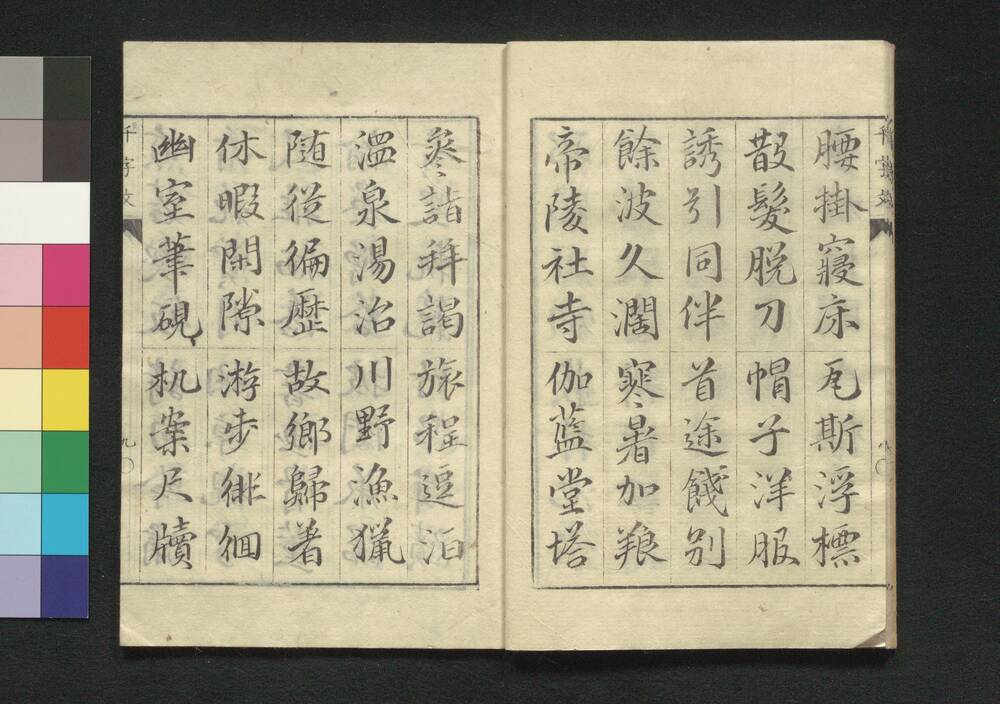 腰掛寢床瓦斯浮標
散髮脱刀帽子洋服
誘引同伴首途餞別
餘波久濶寒暑加飱
帝陵社寺伽藍堂塔
参詣拜謁旅程逗泊
溫泉湯治川野漁獵
随從徧歷故鄉歸著
休暇閑隙游步徘徊
幽室筆硯机案尺牘
千字文
九